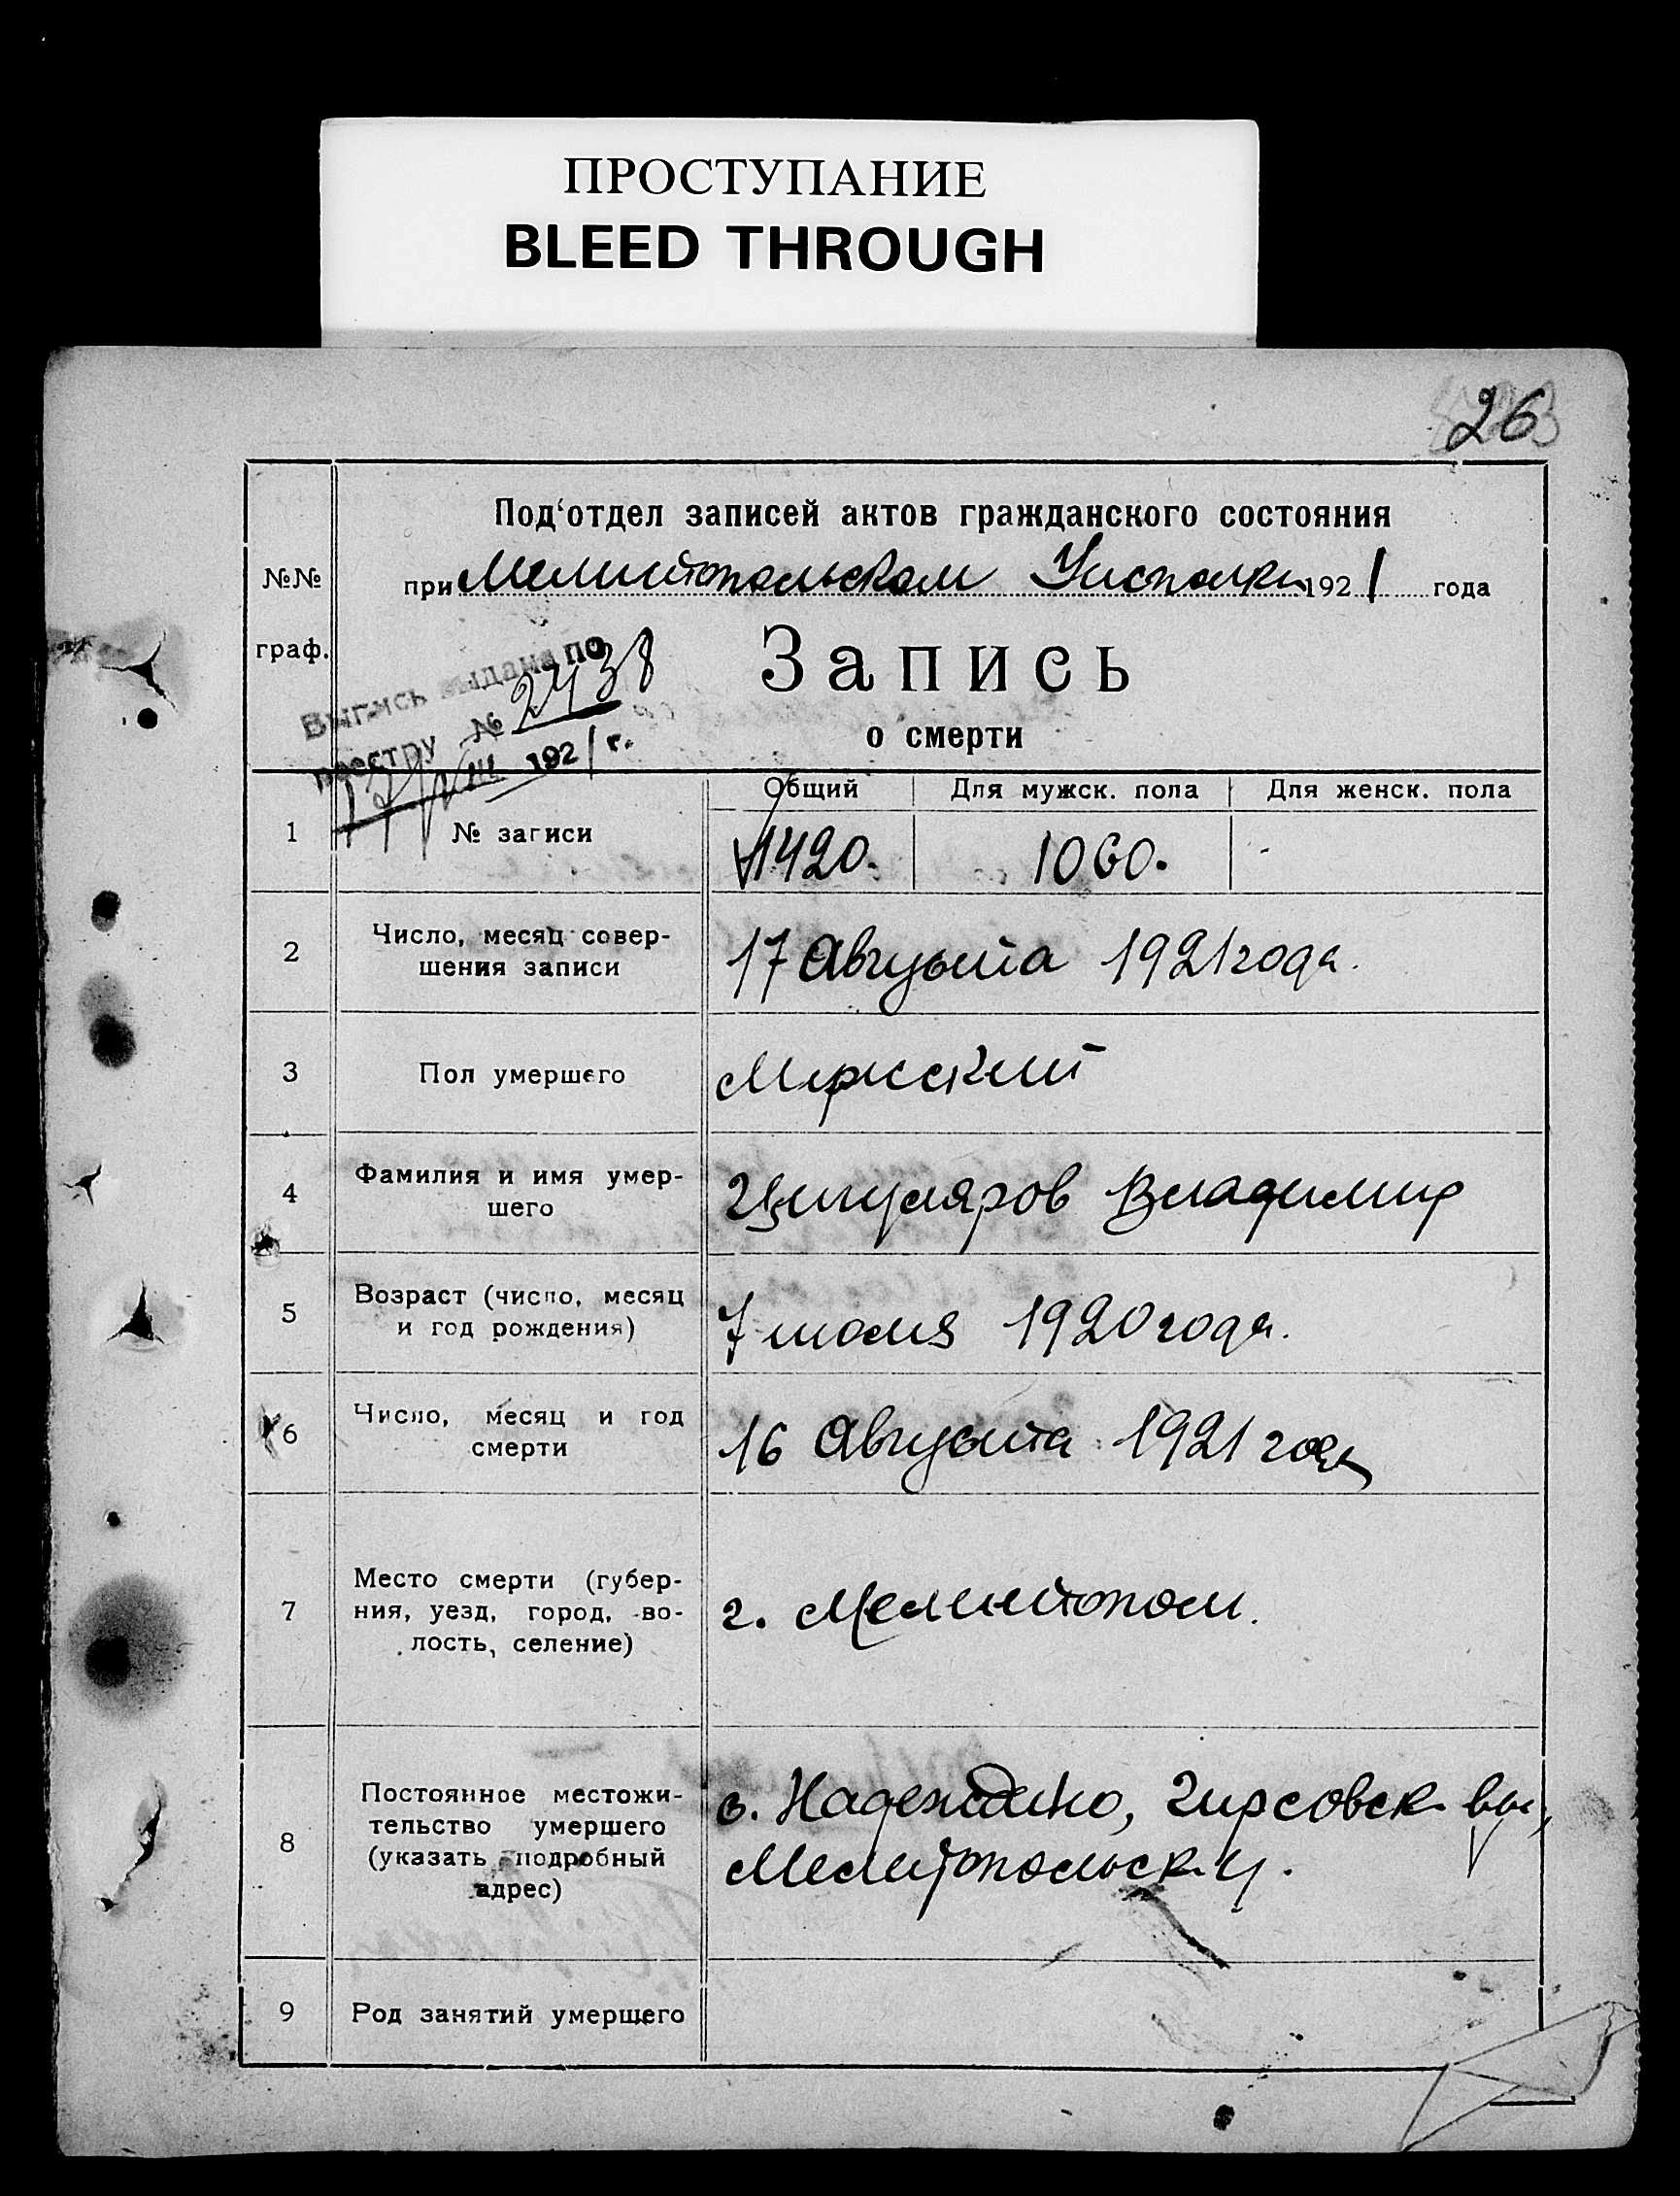 ПРОСТУПАНИЕ
BLEED THROUGH
26
Под'отдел записей актов гражданского состояния
№№
при Мелитопольском Уисполк. 1921 года
граф.
Запись
о смерти
Выпись выдана по
реестру № 2438
17/VIII 1921 г.
Общий Для мужск. пола Для женск. пола
1 № записи 1420. 1060. -
2 Число, месяц совер-
шения записи
17 Августа 1921 года.
3 Пол умершего Мужский
4 Фамилия и имя умер-
шего
Владимир
5 Возраст (число, месяц
и год рождения)
7 июля 1920 года.
6 Число, месяц и год
смерти
16 Августа 1921 года
7 Место смерти (губер-
ния, уезд, город, во-
лость, селение)
г. Мелитополь.
8 Постоянное местожи-
тельство умершего
(указать подробный
адрес)
с. Надеждино, Гирсовск. вол,
Мелитопольск. у.
9 Род занятий умершего